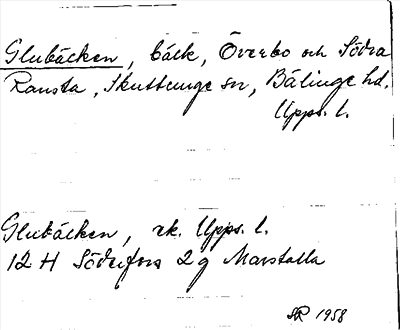 Glubäcken, bäck, Överbo och Södra
Ransta, Skuttunge sn, Bälinge hd.
Upps. l.
Glubäcken, ek. Upps. l.
12 H Söderfors 2g Marstalla
SR 1958